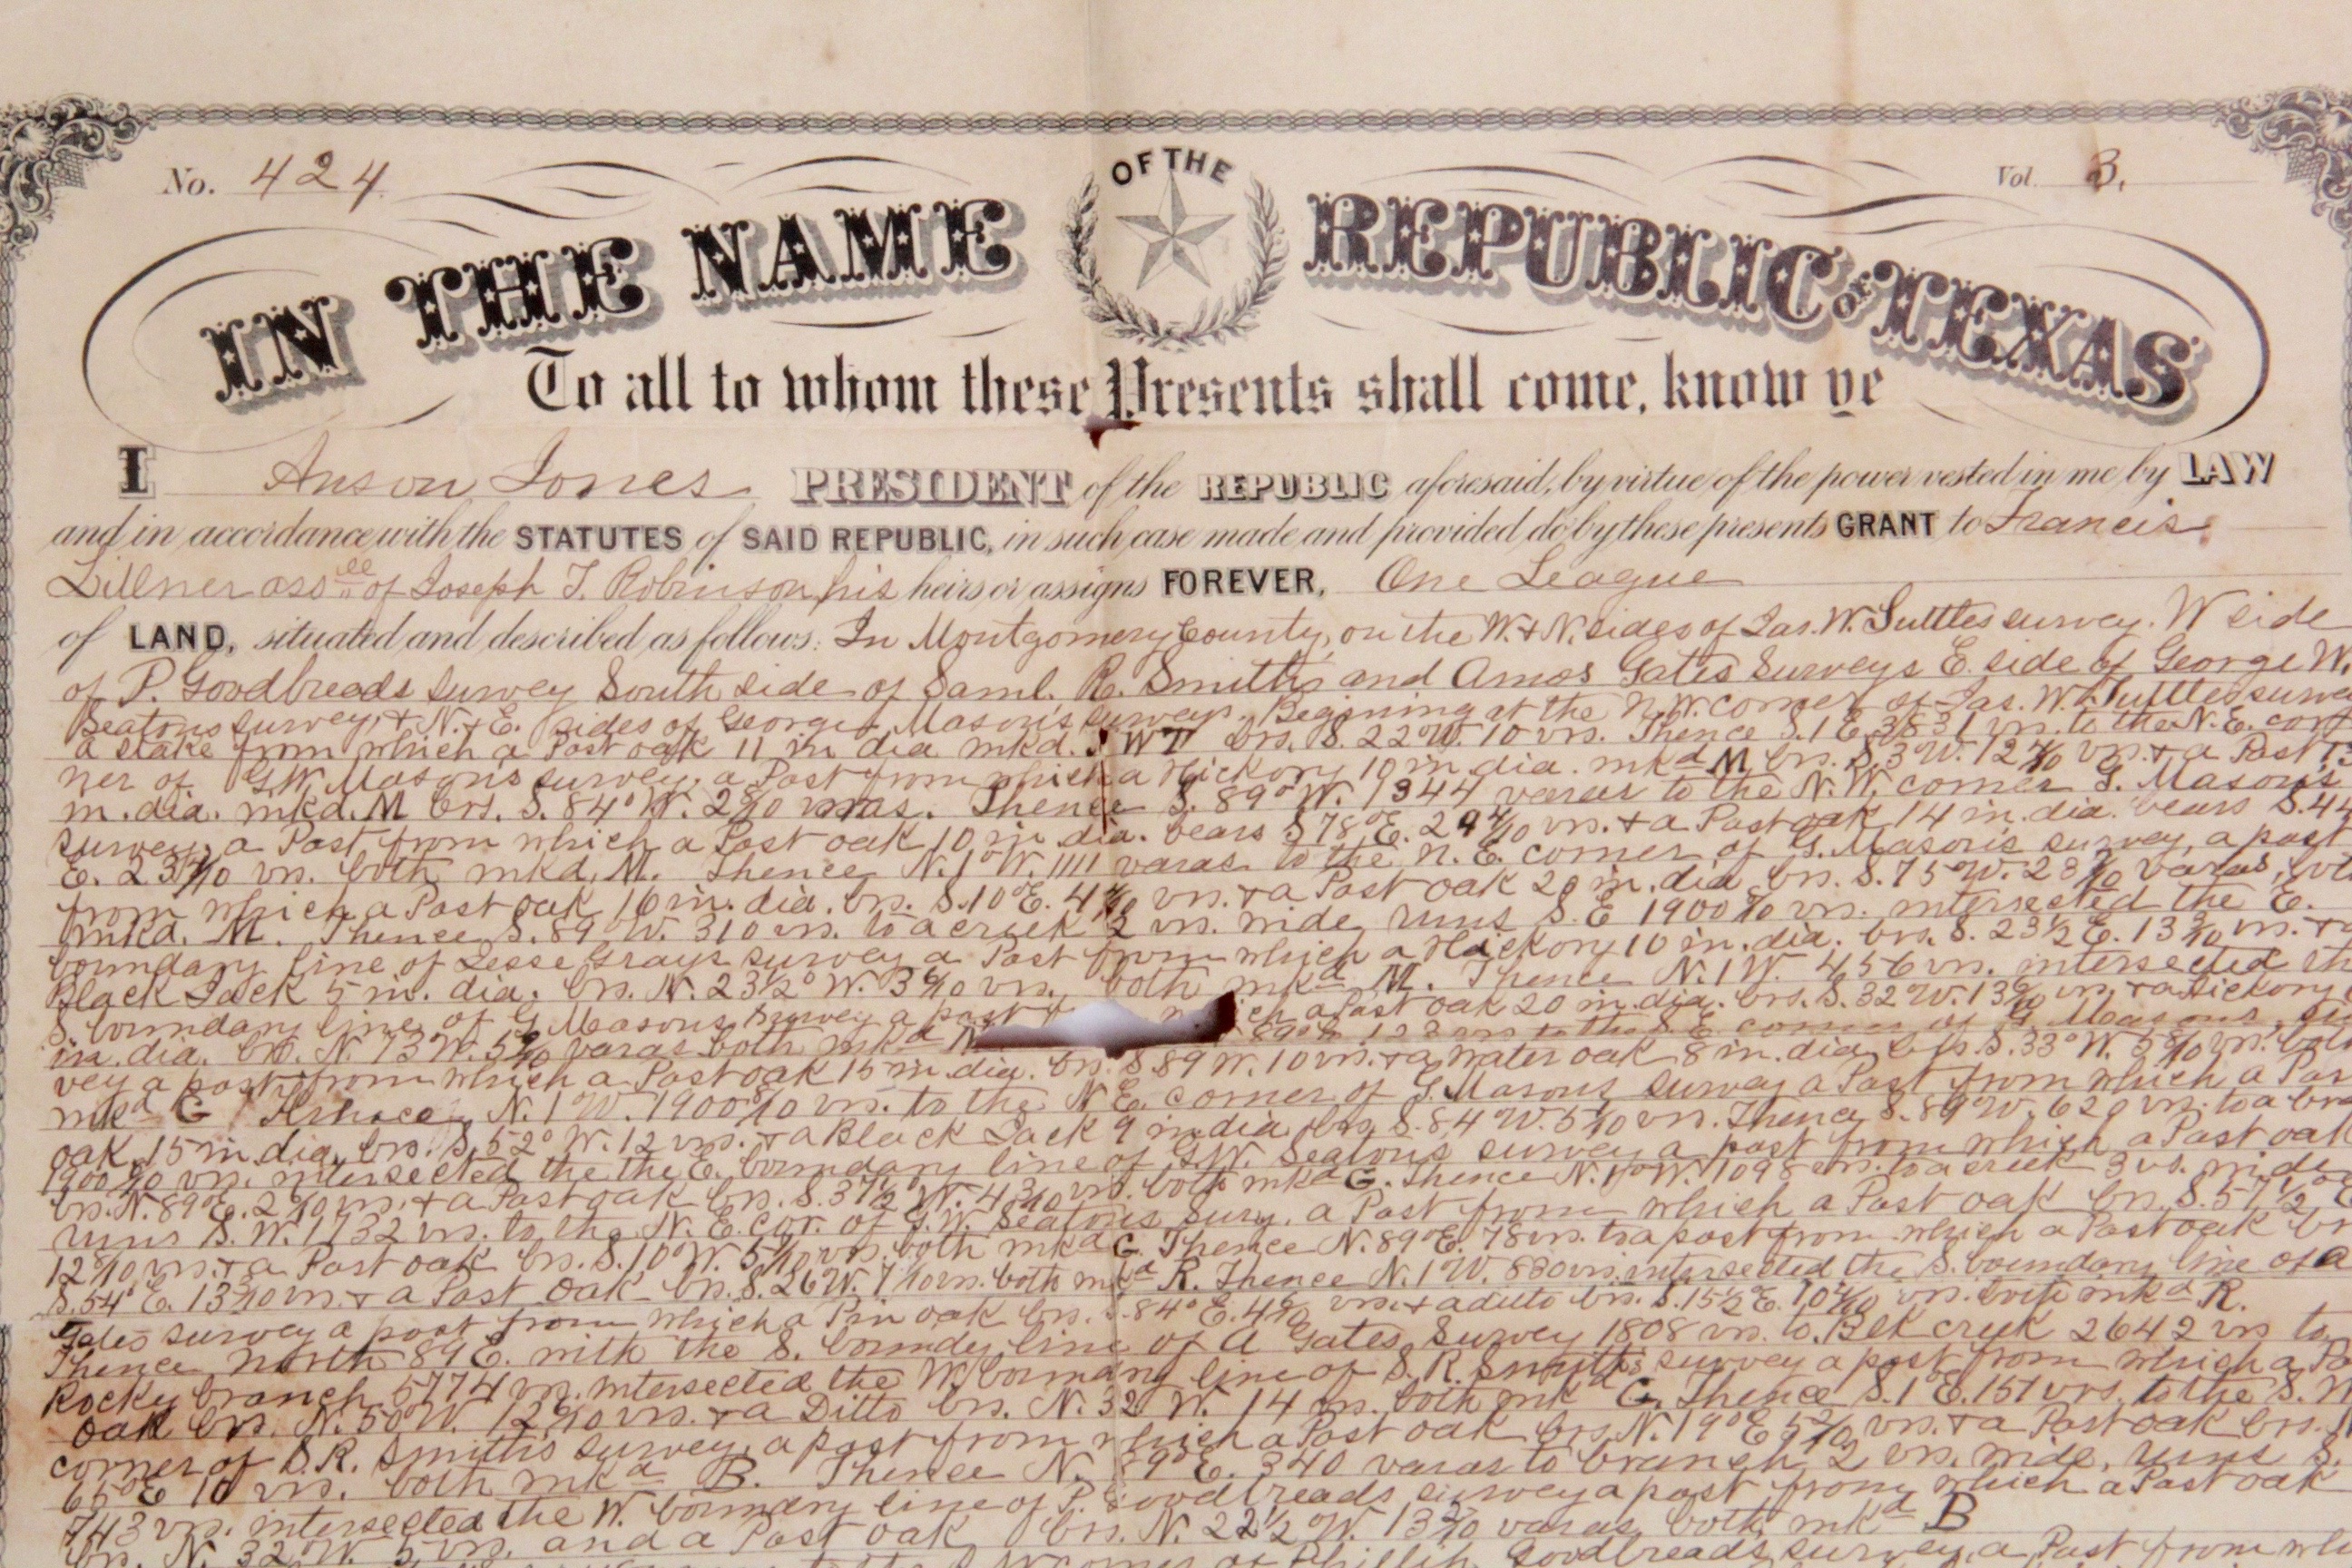 No. 424.
Vol. 3,
IN THE NAME OF THE REPUBLIC OF TEXAS
To all to whom these Presents shall come, know ye
I Anson Jones PRESIDENT of the REPUBLIC aforesaid, by virtue of the power vested in me by LAW
and in accordance with the STATUTES of SAID REPUBLIC, in such case made and provided do by these presents GRANT to Francis
assee of Joseph T. Robinson, his heirs or assigns FOREVER, One League
of LAND, situated and described as follows: In Montgomery County, on the W. & N. sides of Jas. W. Suttles survey. W side
of P. Goodbreads survey South side of Saml. R. Smiths and Amos Gates Surveys E. side of George W.
Seatons survey, & N. & E. sides of George Mason's surveys. Beginning at the N.W. corner of Jas. W. Tuttles
a stake from which a Post oak 11 in dia mkd. J W T brs. S. 22 W. 10 vrs. Thence S. 1 E. 3831 vrs. to the N. E. cor
ner of G.W. Mason's survey, a Post from which a Hickory 10 in dia. mkd M brs. S. 3 W. 12 vrs. & a Post
in. dia. mkd. M brs. S. 84° W. varas. Thence S. 89° W. 1344 varas to the N.W. corner G. Mason's
survey, a Post from which a Post oak 10 in dia. bears S 78° E. vrs. & a Post oak 14 in. dia. bears S.
E. vrs. both mkd. M. Thence N. 1° W. 1111 varas to the N. E. corner of G. Mason's survey, a post
from which a Post oak 16 in. dia. brs. S. 10° E. vrs. & a Post oak 20 in. dia. brs. S. 75° W. varas,
mkd. M. Thence S. 89 W. 310 vrs. to a creek 2 vrs. wide runs S. E 1900 vrs. intersected the E.
boundary line of Jesse Grays survey a Post from which a Hickory 10 in. dia. brs. S. 23½ E. vrs. &
Black Jack 5 in. dia. brs. N. 23½° W. vrs. both mkd M. Thence N. 1 W. 456 vrs. intersected
S. boundary line of G Masons survey a post which a Post oak 20 in. dia. brs. S. 32° W. vrs. & a Hickory
in. dia. brs. N. 73 W. varas both mkd to the S. E corner of G. Masons
vey a post from which a Post oak 15 in dia. brs. S. 89 W. 10 vrs. & a water oak 8 in. dia. brs. S. 33° W. vrs.
mkd G Thence, N. 1° W. 1900 vrs. to the N E. corner of G. Masons survey a Post from which a
oak 15 in dia. brs. S. 52° W. 12 vrs. & a Black Jack 9 in dia. brs S. 84 W. vrs. Thence S. 89° W. 620 vrs. to a
1900 vrs. intersected the the E. boundary line of G.W. Seatons survey a post from which a Post oak
brs. N. 89° E. vrs. & a Post oak brs. S. 37½° W. vrs. both mkd G. Thence N. 1° W. 1098 vrs. to a creek 3 vs. wide
runs S. W. 1732 vrs. to the N. E. cor. of G. W. Seatons Surv. a Post from which a Post oak brs. S. 57½°
vrs. & a Post oak brs. S. 10° W. vrs. both mkd G. Thence N. 89° E. 78 vrs. to a post from which a Post oak
S. 54° E. vrs. & a Post Oak brs. S. 26 W. vrs. both mkd R. Thence N. 1 W. 880 vrs. intersected the S. boundary line of A
Gates survey a post from which a Pin oak brs. S. 84° E. vrs. & a ditto brs. S. 15½ E. vrs. both mkd R.
Thence North 89 E. with the S. boundry line of A Gates Survey 1808 vrs. to creek 2642 vrs to
Rocky branch 5774 vrs. intersected the W. boundry line of S. R. Smith's survey a post from which a
oak brs. N. 50° W. vrs. & a Ditto brs. N. 32 W. 14 vrs. both mkd G. Thence S. 1 E. 151 vrs. to the S. W
corner of S.R. Smith's survey, a post from which a Post oak brs. N. 19° E vrs. & a Post oak brs.
E 10 vrs. both mkd B. Thence N. 89° E. 340 varas to branch 2 vrs. wide, runs S.
743 vrs. intersected the W. boundry line of P. Goodbreads survey a post from which a Post oak
brs. N. 32° W. 5 vrs. and a Post oak brs. N. 22½° W. varas both mkd B
Goodbreads survey, a Post from